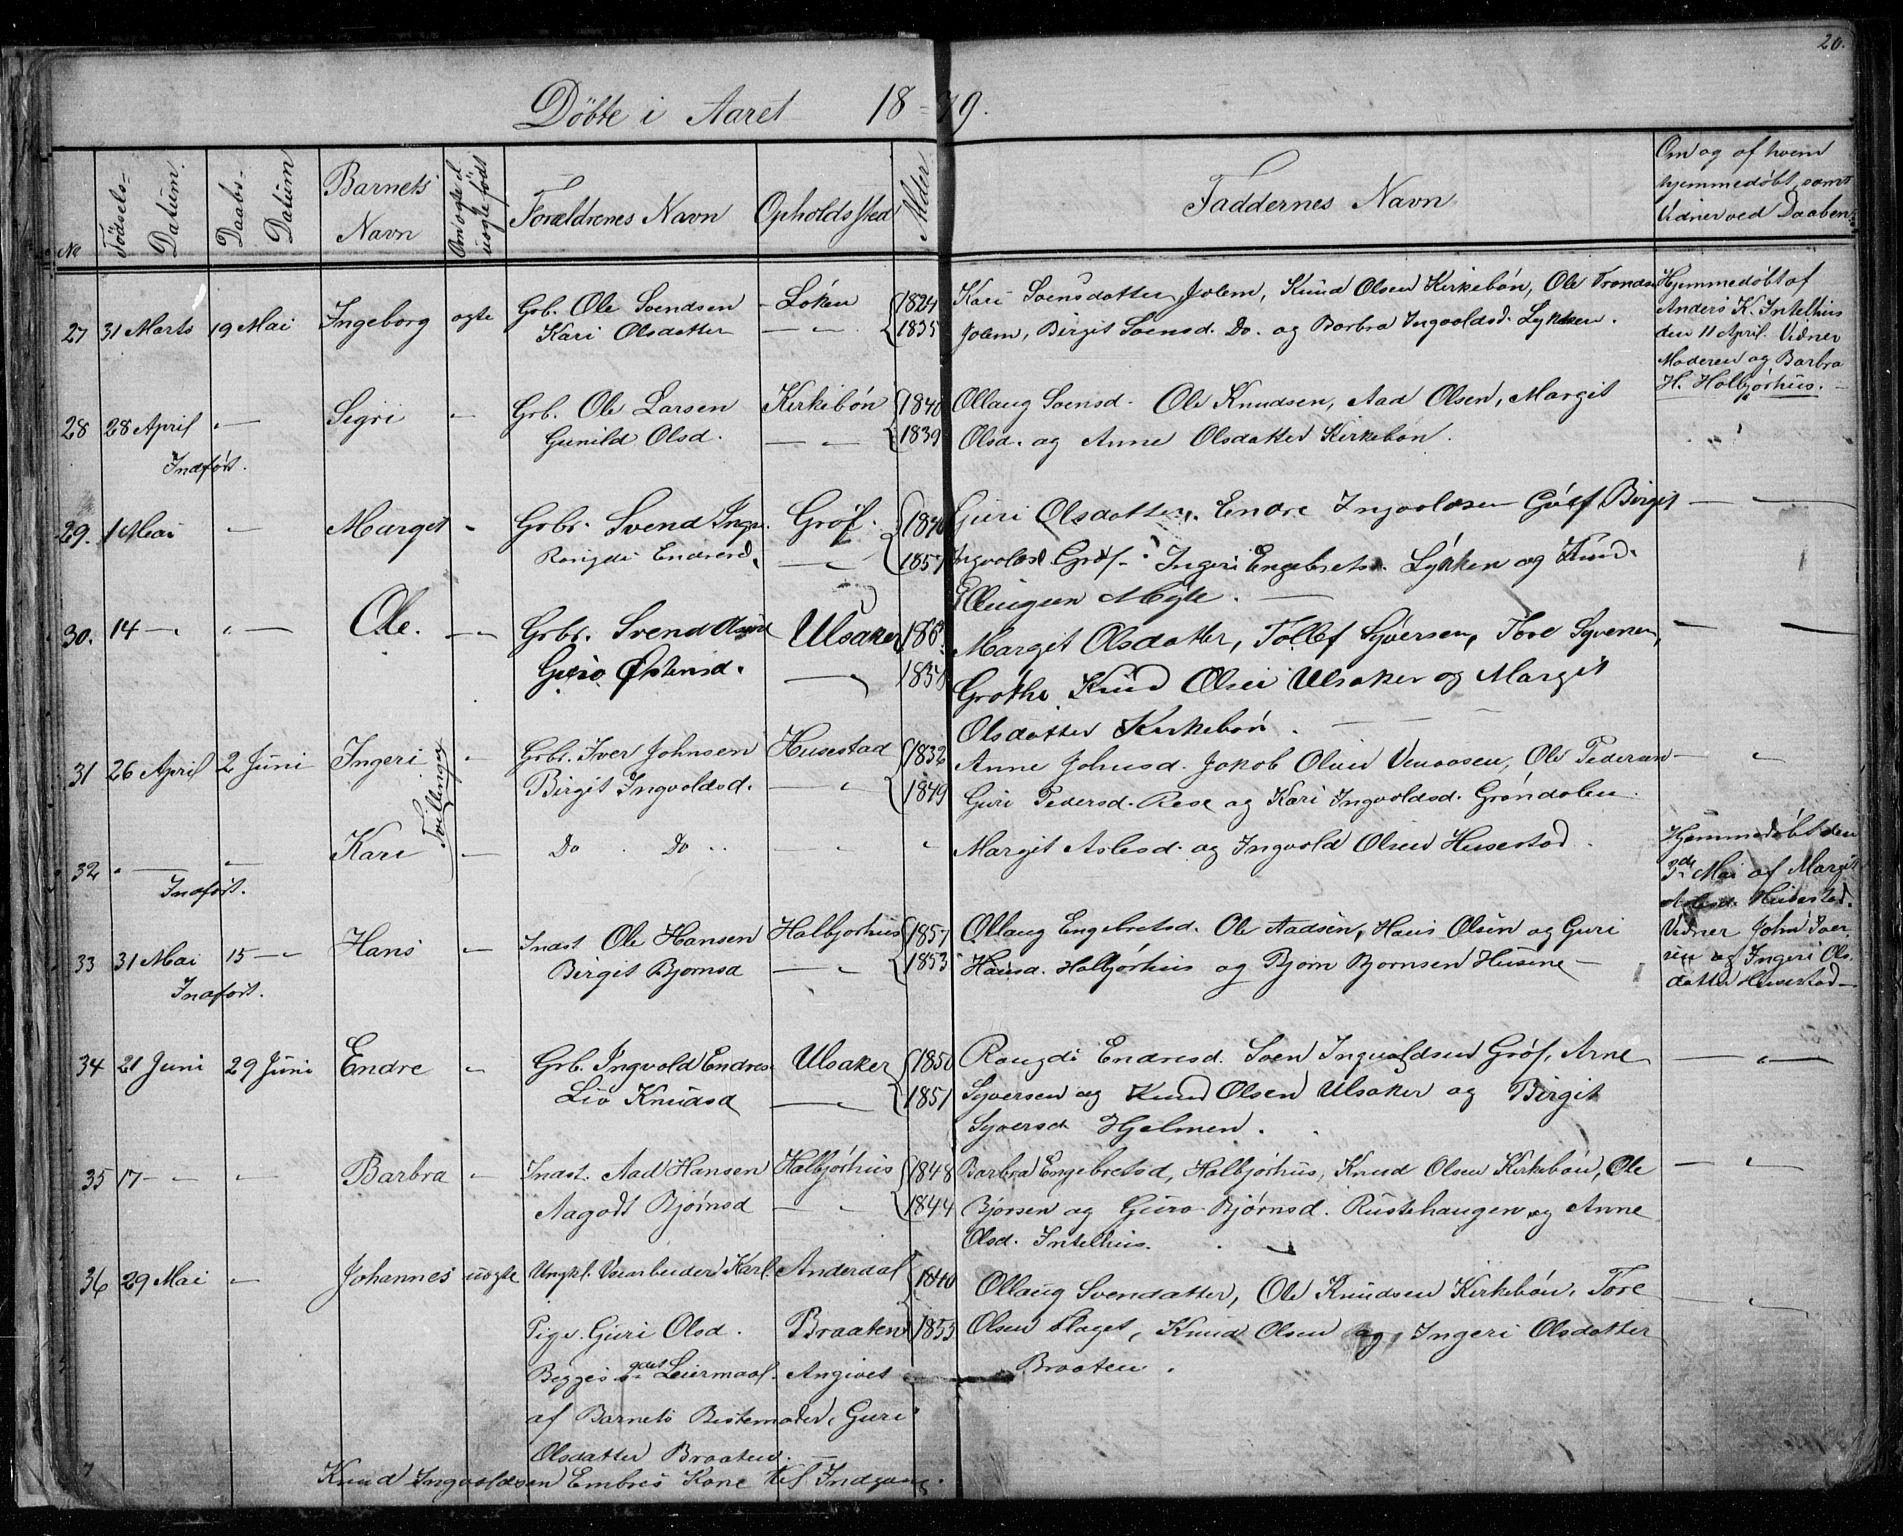 20.
Döbte i Aaret 18-79.
No
Födsels-Datum.
Daabs-Datum
Barnets Navn
Om ægte el. uægte födt
Forældrenes Navn
Opholdssted
Alder
Faddernes Navn
Om og af hvem hjemmedöbt, samt Vidner ved Daaben.
27 31 Marts 19 Mai Ingeborg ægte Grb. Ole Svendsen - Löken 1824 Kari Svensdatter Jolem, Knud Olsen Kirkebön, Ole Tronds
Kari Olsdatter — " — 1835 Jolem, Birgit Svensd. Do. og Barbra Ingvoldsd. Lykken.
Hjemmedöbt af
Anders K. Intelhus
den 11 April. Vidner
Moderen og Barbra
H. Halbjörhus.
28 28 April " — Sigri - Grb. Ole Larsen Kirkebön 1840 Ollaug Svensd. Ole Knudsen, Aad Olsen, Margit
Gunild Olsd. — " — 1839 Olsd. og Anne Olsdatter Kirkebön.
Indfört.
29. 1 Mai " Marget - Grbr. Svend Ingv. Gröf. 1846 Guri Olsdatter, Endre Ingvoldsen Gröf Birgit
Rangdi Endresd. — " — 1857 Ingvoldsd Gröf - Ingeri Engebretsd. Lykken og Knud
Ellingsen Mÿle.
30. 14 — " " — Ole. - - Grbr. Svend Ulsaker Margit Olsdatter, Tollef Syversen, Tore Syversen,
Guro Østensd. — " Gröthe, Knud Olsen Ulsaker og Margit
Olsdatter Kirkebön.
31 26 April 2 Juni Ingeri - Grbr. Iver Johnsen Husestad 1832 Anne Johnsd. Jakob Olsen Ole Pedersen
Tvillinger
Birgit Ingvoldsd. — " 1849 Guri Pedersd. og Kari Ingvoldsd. Gröndalen.
32 " — " — Kari - Do Do " Margit Aslesd. og Ingvold Olsen Husestad.
Indfört.
Hjemmedöbt den
3de Mai af Margit
Aslesd. Husestad.
Vidner John Iver-
sen og Ingeri Ols-
datter Husestad —
33 31 Mai 15 — " Hans - Indst Ole Hansen Halbjorhus 1857 Ollaug Engebretsd. Ole Aadsen, Hans Olsen og Guri
Birgit Bjornsd — " 1853 Hansd. Halbjörhus og Bjorn Bjornsen Husene —
Indfört.
34 21 Juni 29 Juni Endre - Grb. Ingvold Endres. Ulsaker 1850 Rangdi Endresd. Sven Ingvoldsen Gröf, Arne
Liv Knudsd — " 1851 Syversen og Knud Olsen Ulsaker og Birgit
Syversd Hjelmen.
35 17 — " " — Barbra - Indst. Aad Hansen Halbjörhus 1848 Barbra Engebretsd, Halbjörhus, Knud Olsen Kirkebön, Ole
Aagodt Bjørnsd — " 1844 Bjørsen og Guro Bjørnsd. Rustehaugen og Anne
Olsd. Intelhus.
36 29 Mai " — Johannes uægte Ungkl. Karl. Anderdal 1840 Ollaug Svendatter, Ole Knudsen Kirkebön, Tore
Pige. Guri Olsd. Braaten 1853 Olsen Slaget, Knud Olsen og Ingeri Olsdatter
Begges Leiermaal. Angivet Braaten.
af Barnets Bestemoder, Guri
Olsdatter Braaten.
Knud Ingvoldsen Embres Kone til Indgang.